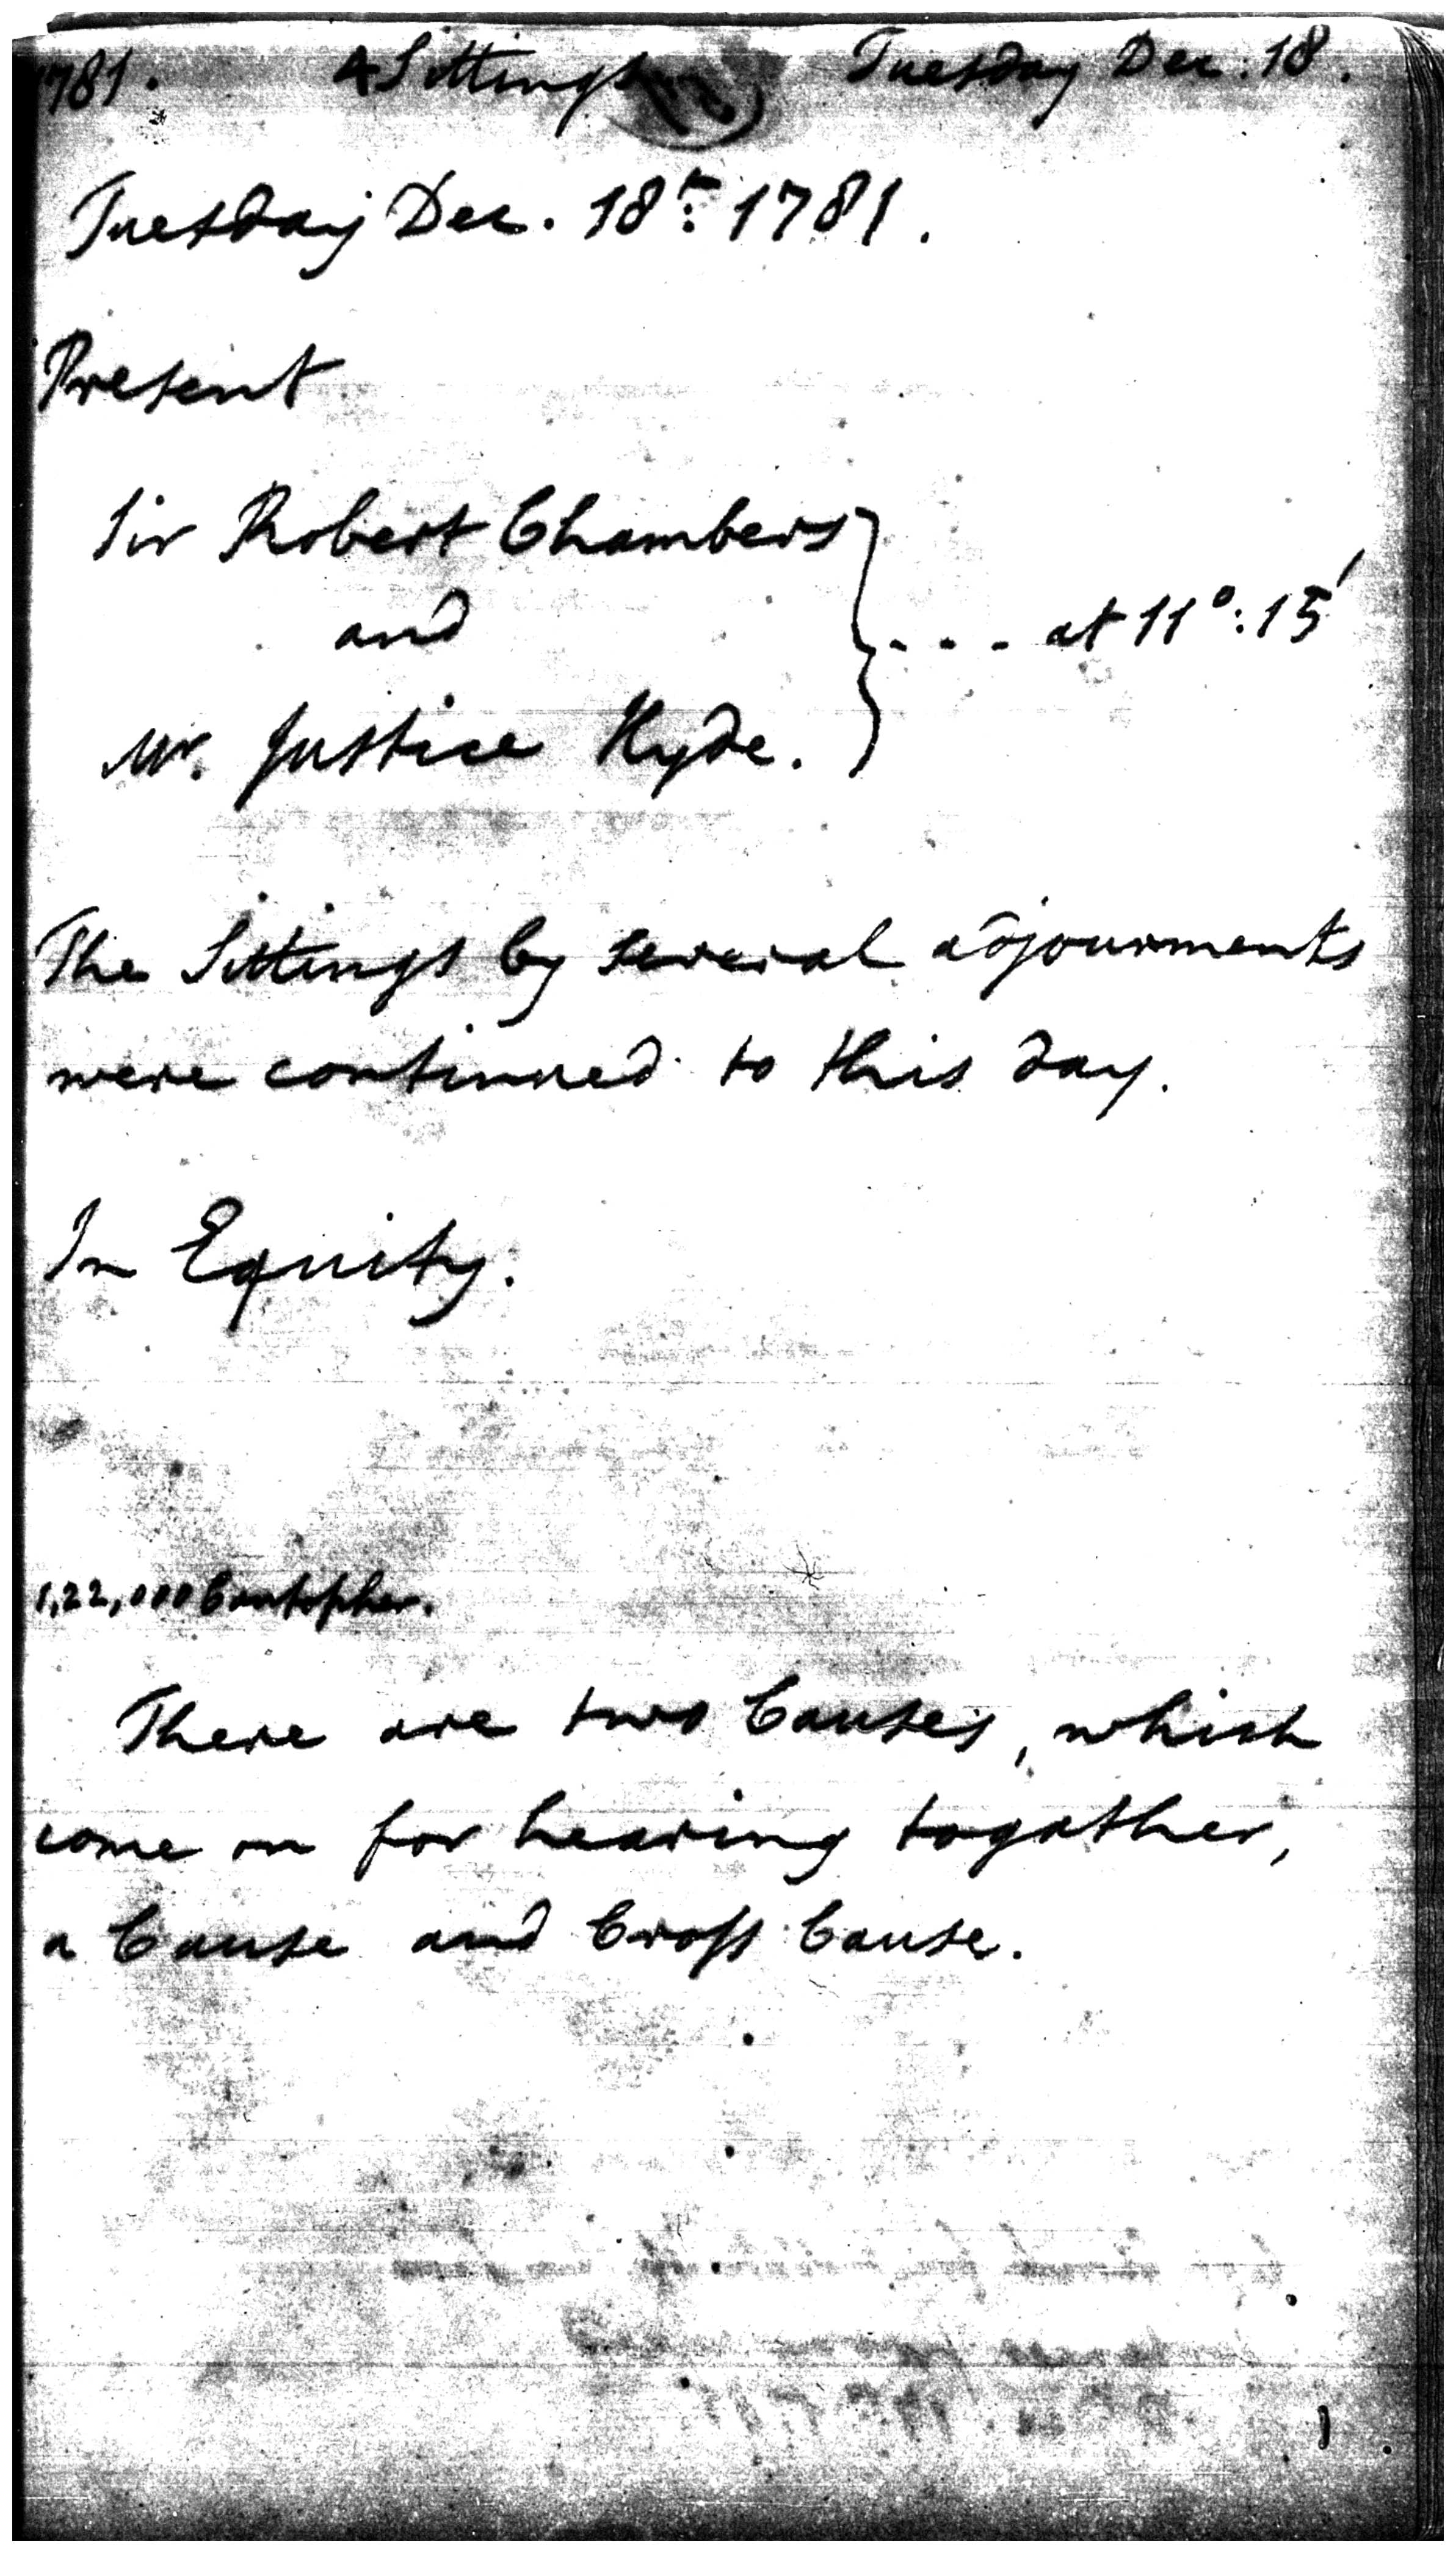 1781. 4 Sittings Tuesday Dec. 18.
Tuesday Dec. 18th. 1781.
Present
Sir Robert Chambers
and
at 11°: 15'
Mr. Justice Hyde.
The Sittings by several adjournments
were continued to this day.
In Equity.
1,22,000
There are two Causes, which
come on for hearing together,
a Cause and Cross Cause.